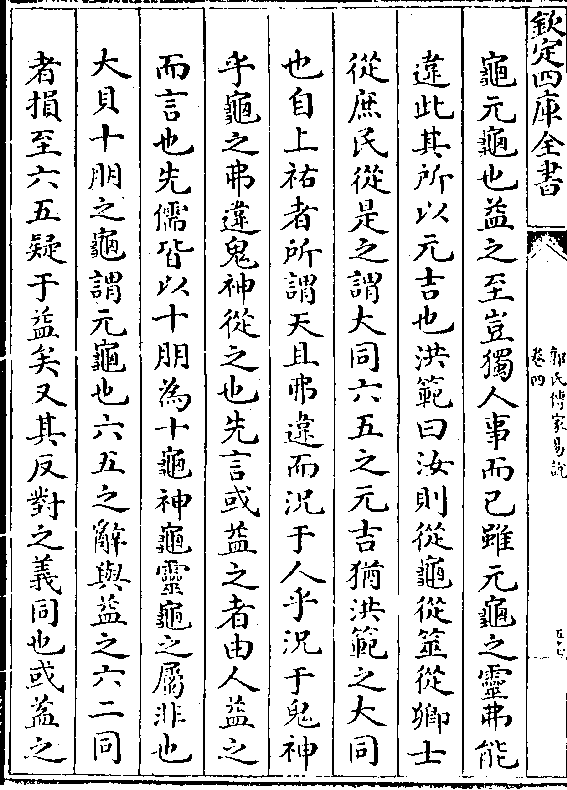 欽定四庫全書
郭氏傳家易說
卷四
龜元龜也益之至豈獨人事而已雖元龜之靈弗能
違此其所以元吉也洪範曰汝則從龜從筮從卿士
從庶民從是之謂大同六五之元吉猶洪範之大同
也自上祐者所謂天且弗違而況于人乎況于鬼神
乎龜之弗違鬼神從之也先言或益之者由人益之
而言也先儒皆以十朋為十龜神龜靈龜之屬非也
大貝十朋之龜謂元龜也六五之辭與益之六二同
者損至六五疑于益矣又其反對之義同也或益之